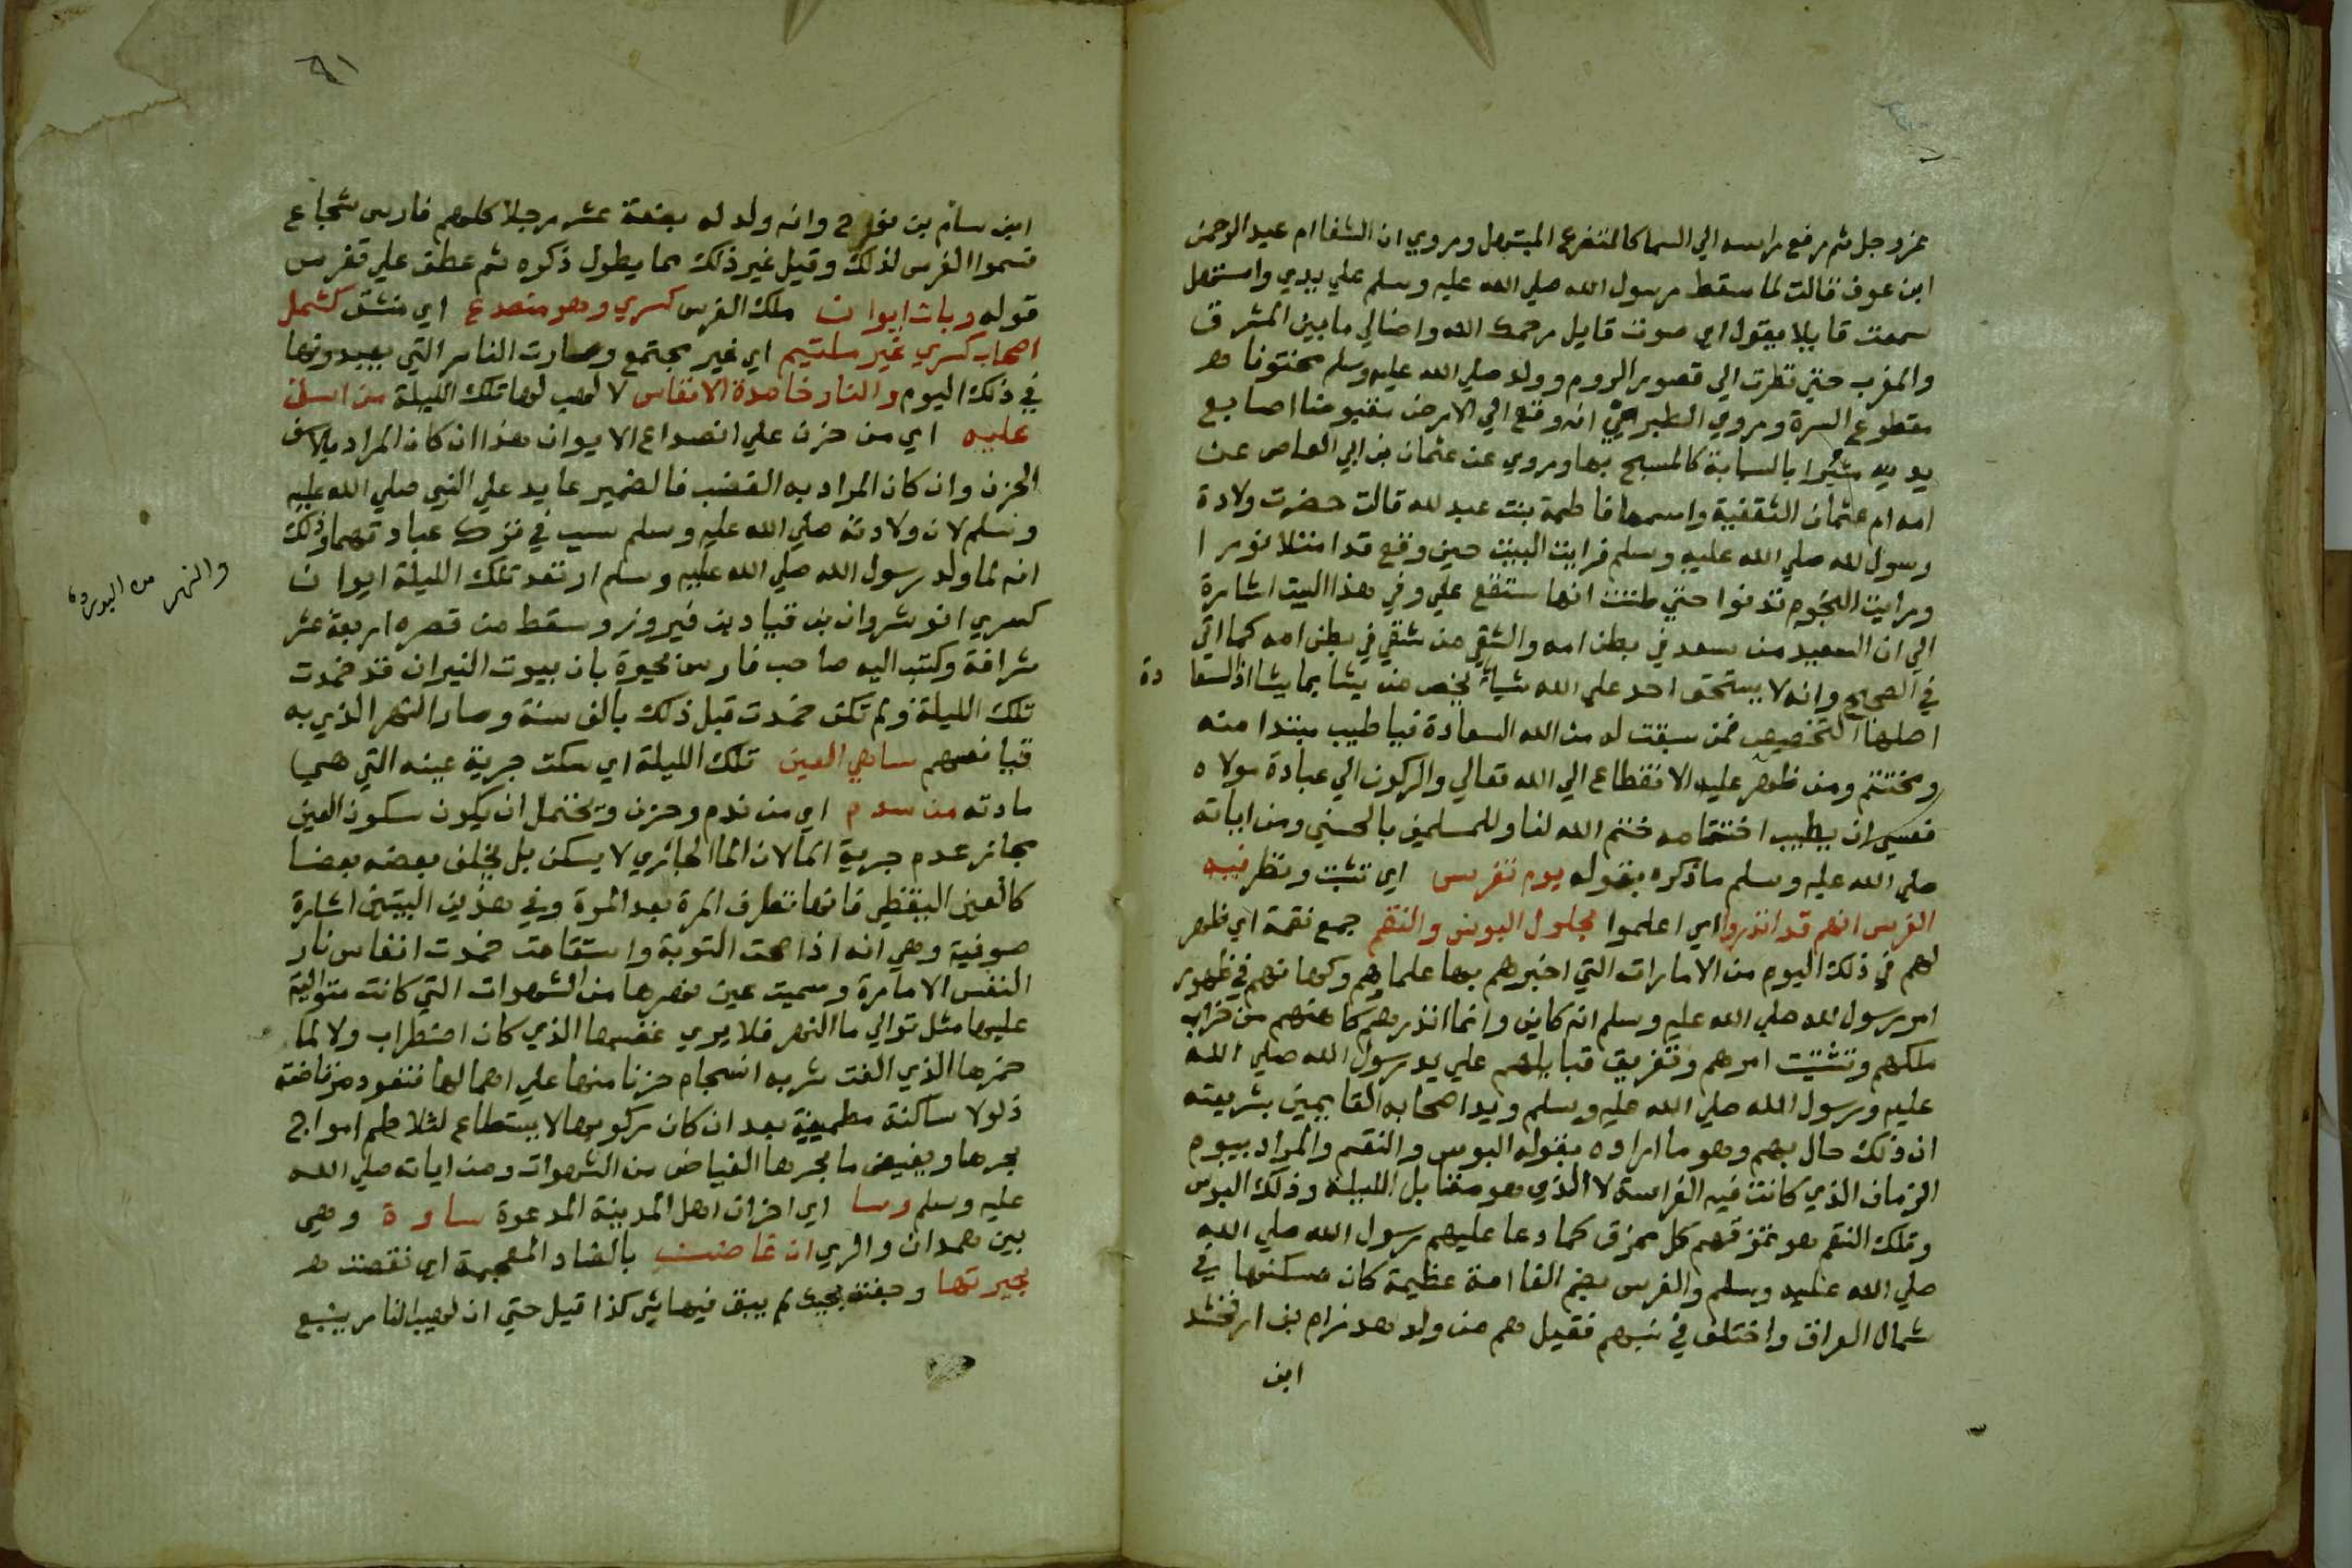 عزوجل ثم رفع راسه الي السما كالمتضرع المبتهل وروي ان الشفا ام عبد الرحمن
ابن عوف قالت لما سقط رسول الله صلي الله عليه وسلم علي يدي واستهل
سمعت قايلا يقول اي صوت قايل رحمك الله واضالي مابين المشرق
والمغرب حتي نظرت الي قصور الروم وولد صلي الله عليه وسلم مختونا
مقطوع السرة وروي الطبراني انه وقع الي الارض مقبوضا اصابع
يديه مشيرا بالسبابة كالمسبح بها وروي عن عثمان بن ابي العاص عن
امه ام عثمان الثقفية واسمها فاطمة بنت عبد الله قالت حضرت ولادة
رسول الله صلي الله عليه وسلم فرايت البيت حين وقع قد امتلا نورا
ورايت النجوم تدنوا حتي ظننت انها ستقع علي وفي هذا البيت اشارة
الي ان السعيد من سعد في بطن امه والشقي من شقي في بطن امه كما اتي
في الصحيح وانه لا يستحق احد علي الله شيا يختص من يشا بما يشا اذ السعا دة
اصلها التخصيص فمن سبقت له من الله السعادة فيا طيب مبتدا منه
ومختتم ومن ظهر عليه الانقطاع الي الله تعالي والركون الي عبادة مولاه
فعسي ان يطيب اختتامه ختم الله لنا وللمسلمين بالحسني ومن اياته
صلي الله عليه وسلم ماذكره بقوله يوم تفرس اي تثبت ونظر فيه
الفرس انهم قد انذروا اي اعلموا بحلول البوس والنقم جمع نقمة اي ظهر
لهم في ذلك اليوم من الامارات التي اخبرهم بها علماوهم وكهانهم في ظهور
امر رسول الله صلي الله عليه وسلم انه كاين وانما انذرهم كاهنهم من خراب
ملكهم وتشتيت امرهم وتفريق قبايلهم علي يد رسول الله صلي الله
عليه ورسول الله صلي الله عليه وسلم ويد اصحابه القايمين بشريعته
ان ذلك حال بهم وهو ما اراده بقوله البوس والنقم والمراد بيوم
الزمان الذي كانت فيه الفراسة لا الذي هو مقابل الليلة وذلك البوس
وتلك النقم هو تمزقهم كل ممزق كما دعا عليهم رسول الله صلي الله
صلي الله عليه وسلم والفرس بضم الفا امة عظيمة كان مسكنها في
شمال العراق واختلف في نسبهم فقيل هم من ولد هدرام بن ارفخشد
ابن
٦١
ابن سام بن نوح وانه ولد له بضعة عشر رجلا كلهم فارس شجاع
فسموا الفرس لذلك وقيل غير ذلك مما يطول ذكره ثم عطف علي تفرس
قوله وبات ايوان ملك الفرس كسري وهو منصدع اي منشق كشمل
اصحاب كسري غير ملتيم اي غير مجتمع وصارت النار التي يعبدونها
في ذلك اليوم والنار خامدة الانفاس لا لهب لها تلك الليلة من اسف
عليه اي من حزن علي انصداع الايوان هذا ان كان المراد بالاسف
الحزن وان كان المراد به الغضب فالضمير عايد علي النبي صلي الله عليه
وسلم لان ولادته صلي الله عليه وسلم سبب في ترك عبادتهما وذلك
انه لما ولد رسول الله صلي الله عليه وسلم ارتعد تلك الليلة ايوان
كسري انوشروان بن قباد بن فيروز وسقط من قصره اربعة عشر
شرافة وكتب اليه صاحب فارس بان بيوت النيران قد خمدت
تلك الليلة ولم تكن خمدت قبل ذلك بالف سنة وصار النهر الذي به
ساهي العين تلك الليلة اي سكت جرية عينه التي هي
مادته من سدم اي من ندم وحزن ويحتمل ان يكون سكون العين
مجاز عدم جرية الما لان الما الجازي لا يسكن بل يخلف بعضه بعضا
كالعين اليقظي فانها تطرف المرة بعد المرة وفي هذين البيتين اشارة
صوفية وهي انه اذا صحت التوبة واستقامت خمدت انفاس نار
النفس الامارة وسميت عين نهرها من الشهوات التي كانت متوالية
عليها مثل توالي ما النهر فلا يري غضبها الذي كان اضطراب ولا لما
خمرها الذي الفت شربه انسجام حزنا منها علي اهمالها فتعود مرتاضة
ذلولا ساكنة مطمينة بعد ان كان ركوبها لا يستطاع لتلاطم امواج
بحرها ويغيض ما بحرها الفياض من الشهوات ومن اياته صلي الله
عليه وسلم وسا اي احزن اهل المدينة المدعوة ساوة وهي
بين همدان والري ان غاضت بالضاد المعجمة اي نقصت
بحيرتها وجفت بحيث لم يبق فيها شي كذا قيل حتي ان لهيب النار ينبع
والنهر